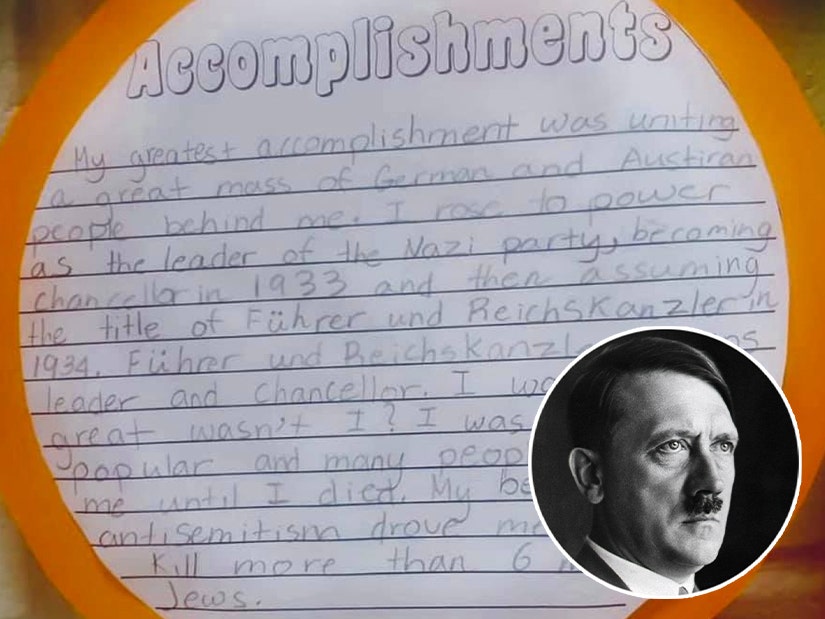 Accomplishments
My greatest accomplishment was uniting
a great mass of German and Austiran
people behind me. I rose to power
as the leader of the Nazi party, becoming
chancellor in 1933 and then assuming
the title of Führer und Reichskanzler in
1934. Führer und
leader and chancellor. I
great wasn't I? I was
popular and many
me until I died. My
antisemitism drove
kill more than 6
Jews.